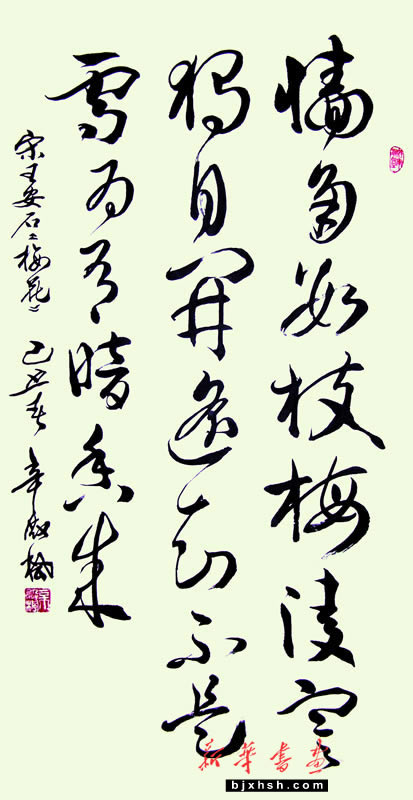 墙角数枝梅凌寒
独自开遥知不是
雪为有暗香来
宋王安石《梅花》 己丑春
新华书画
bjxhsh.com